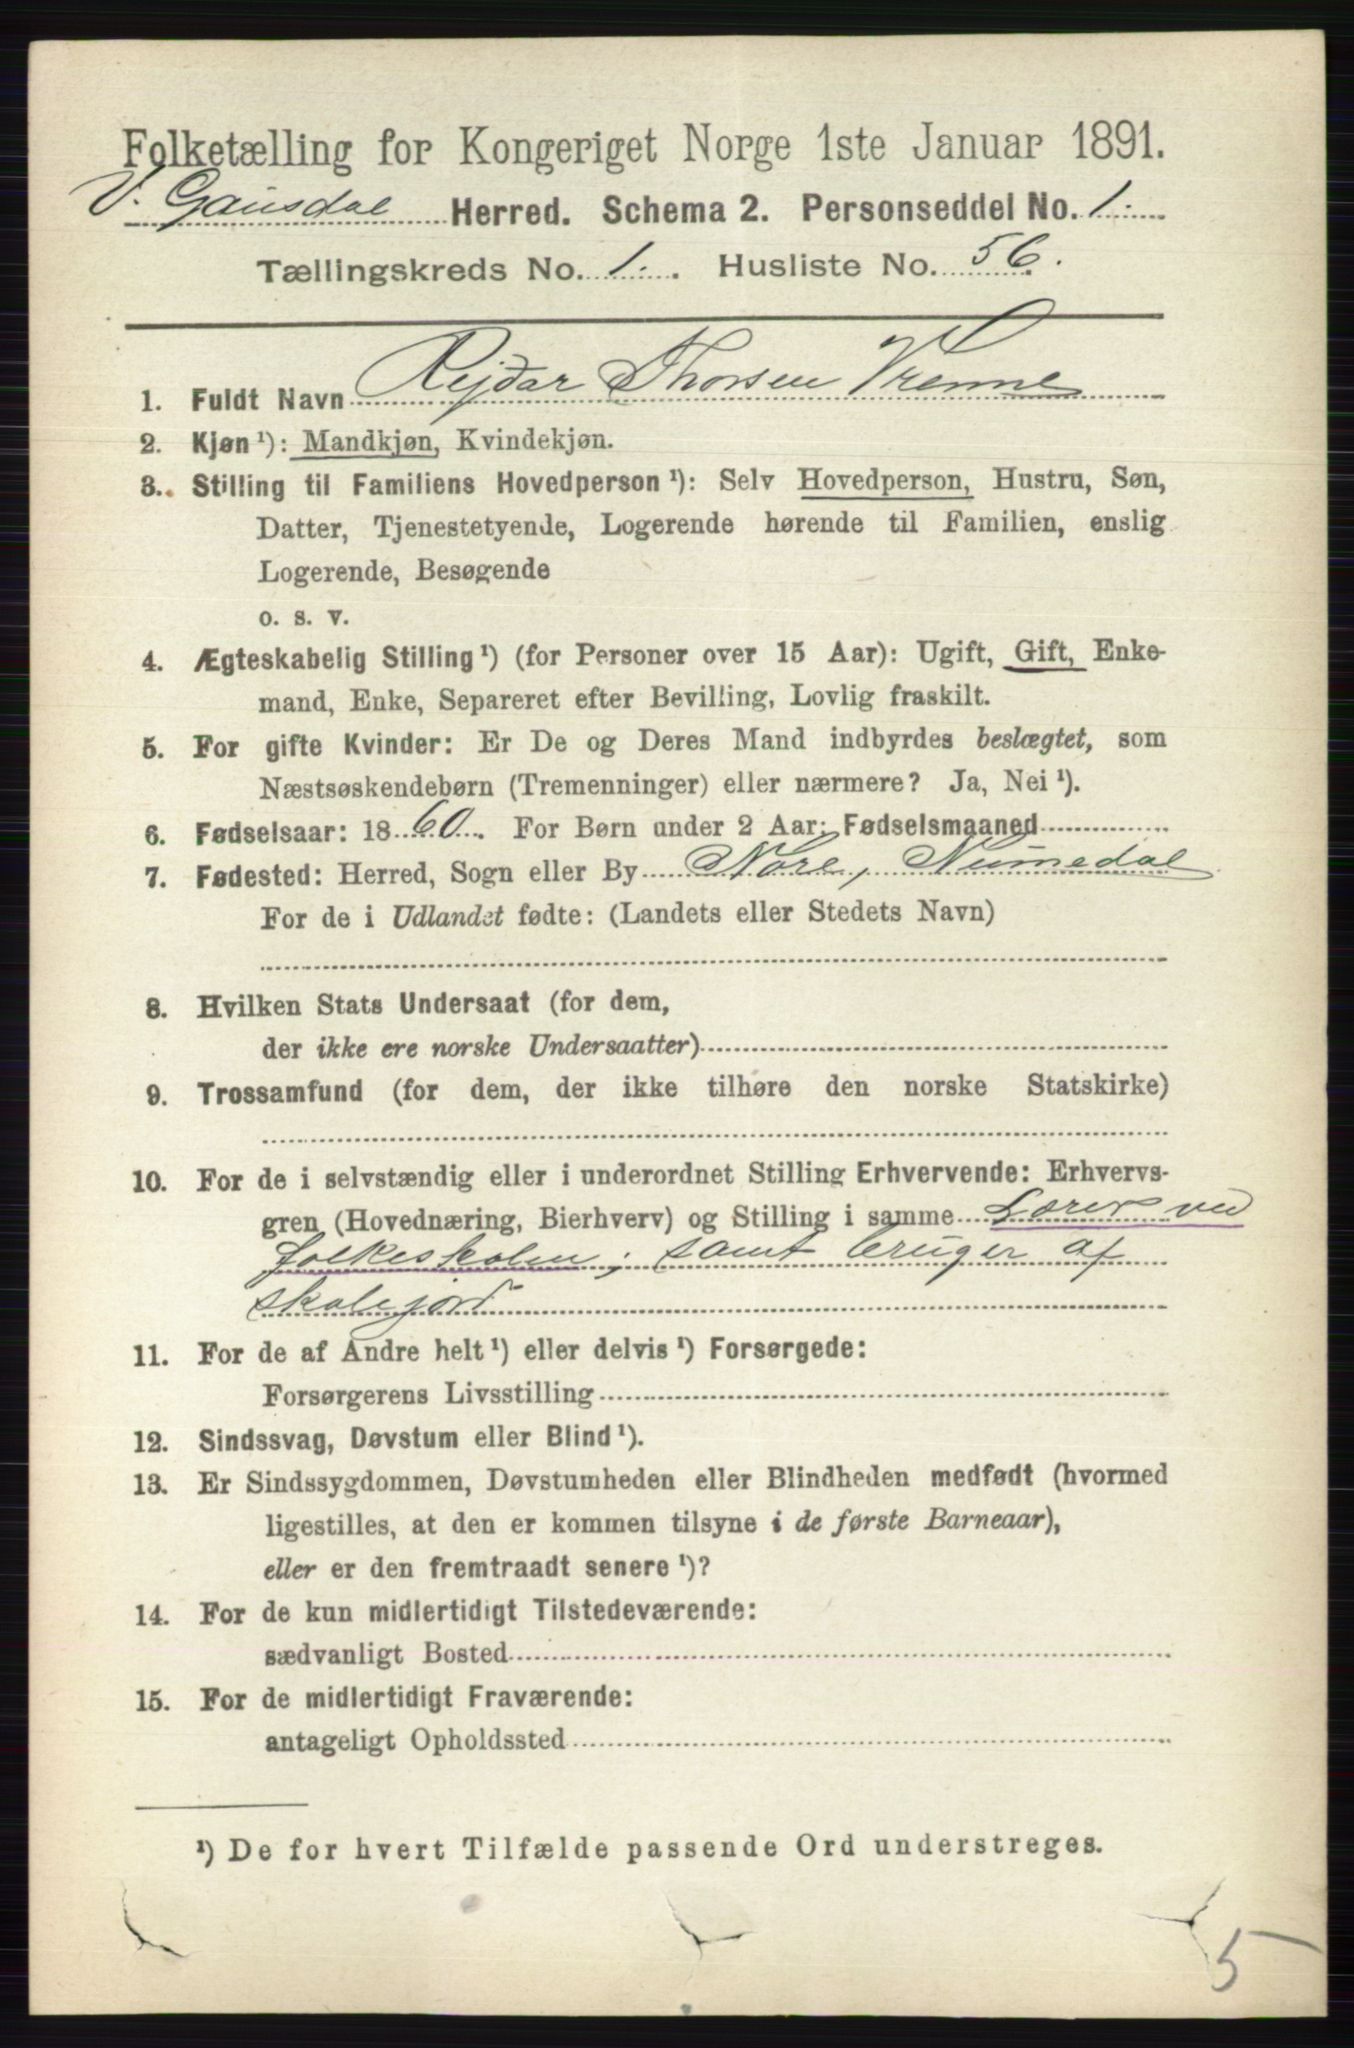 Folketælling for Kongeriget Norge 1ste Januar 1891.
V. Gausdal Herred. Schema 2. Personseddel No. 1.
Tællingskreds No. 1. Husliste No. 56.
1. Fuldt Navn Rejdar Thorsen Vrenne
2. Kjøn ¹): Mandkjøn, Kvindekjøn.
3. Stilling til Familiens Hovedperson ¹): Selv Hovedperson, Hustru, Søn,
Datter, Tjenestetyende, Logerende hørende til Familien, enslig
Logerende, Besøgende
o. s. v.
4. Ægteskabelig Stilling ¹) (for Personer over 15 Aar): Ugift, Gift, Enke-
mand, Enke, Separeret efter Bevilling, Lovlig fraskilt.
5. For gifte Kvinder: Er De og Deres Mand indbyrdes beslægtet, som
Næstsøskendebørn (Tremenninger) eller nærmere? Ja, Nei ¹).
6. Fødselsaar: 1860. For Børn under 2 Aar: Fødselsmaaned
7. Fødested: Herred, Sogn eller By Nore, Numedal
For de i Udlandet fødte: (Landets eller Stedets Navn)
8. Hvilken Stats Undersaat (for dem,
der ikke ere norske Undersaatter)
9. Trossamfund (for dem, der ikke tilhøre den norske Statskirke)
10. For de i selvstændig eller i underordnet Stilling Erhvervende: Erhvervs-
gren (Hovednæring, Bierhverv) og Stilling i samme Lærer ved
folkeskolen; samt bruger af
skolejord
11. For de af Andre helt ¹) eller delvis ¹) Forsørgede:
Forsørgerens Livsstilling
12. Sindssvag, Døvstum eller Blind ¹).
13. Er Sindssygdommen, Døvstumheden eller Blindheden medfødt (hvormed
ligestilles, at den er kommen tilsyne i de første Barneaar),
eller er den fremtraadt senere ¹)?
14. For de kun midlertidigt Tilstedeværende:
sædvanligt Bosted
15. For de midlertidigt Fraværende:
antageligt Opholdssted
¹) De for hvert Tilfælde passende Ord understreges.
5